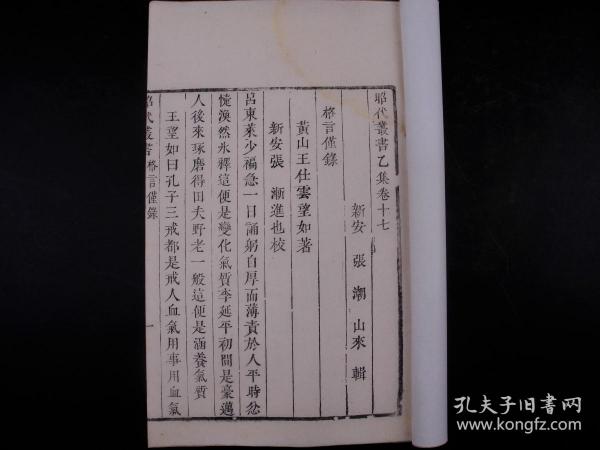 昭代叢書乙集卷十七
新安 張 潮 山來 輯
格言僅錄
黃山王仕雲望如著
新安張 漸進也校
呂東萊少褊急一日誦躬自厚而薄責於人平時忿
懥渙然氷釋這便是變化氣質李延平初間是豪邁
人後來琢磨得田夫野老一般這便是涵養氣質
王望如曰孔子三戒都是戒人血氣用事用血氣
昭代叢書 格言僅錄 一
孔夫子旧书网
www.kongfz.com